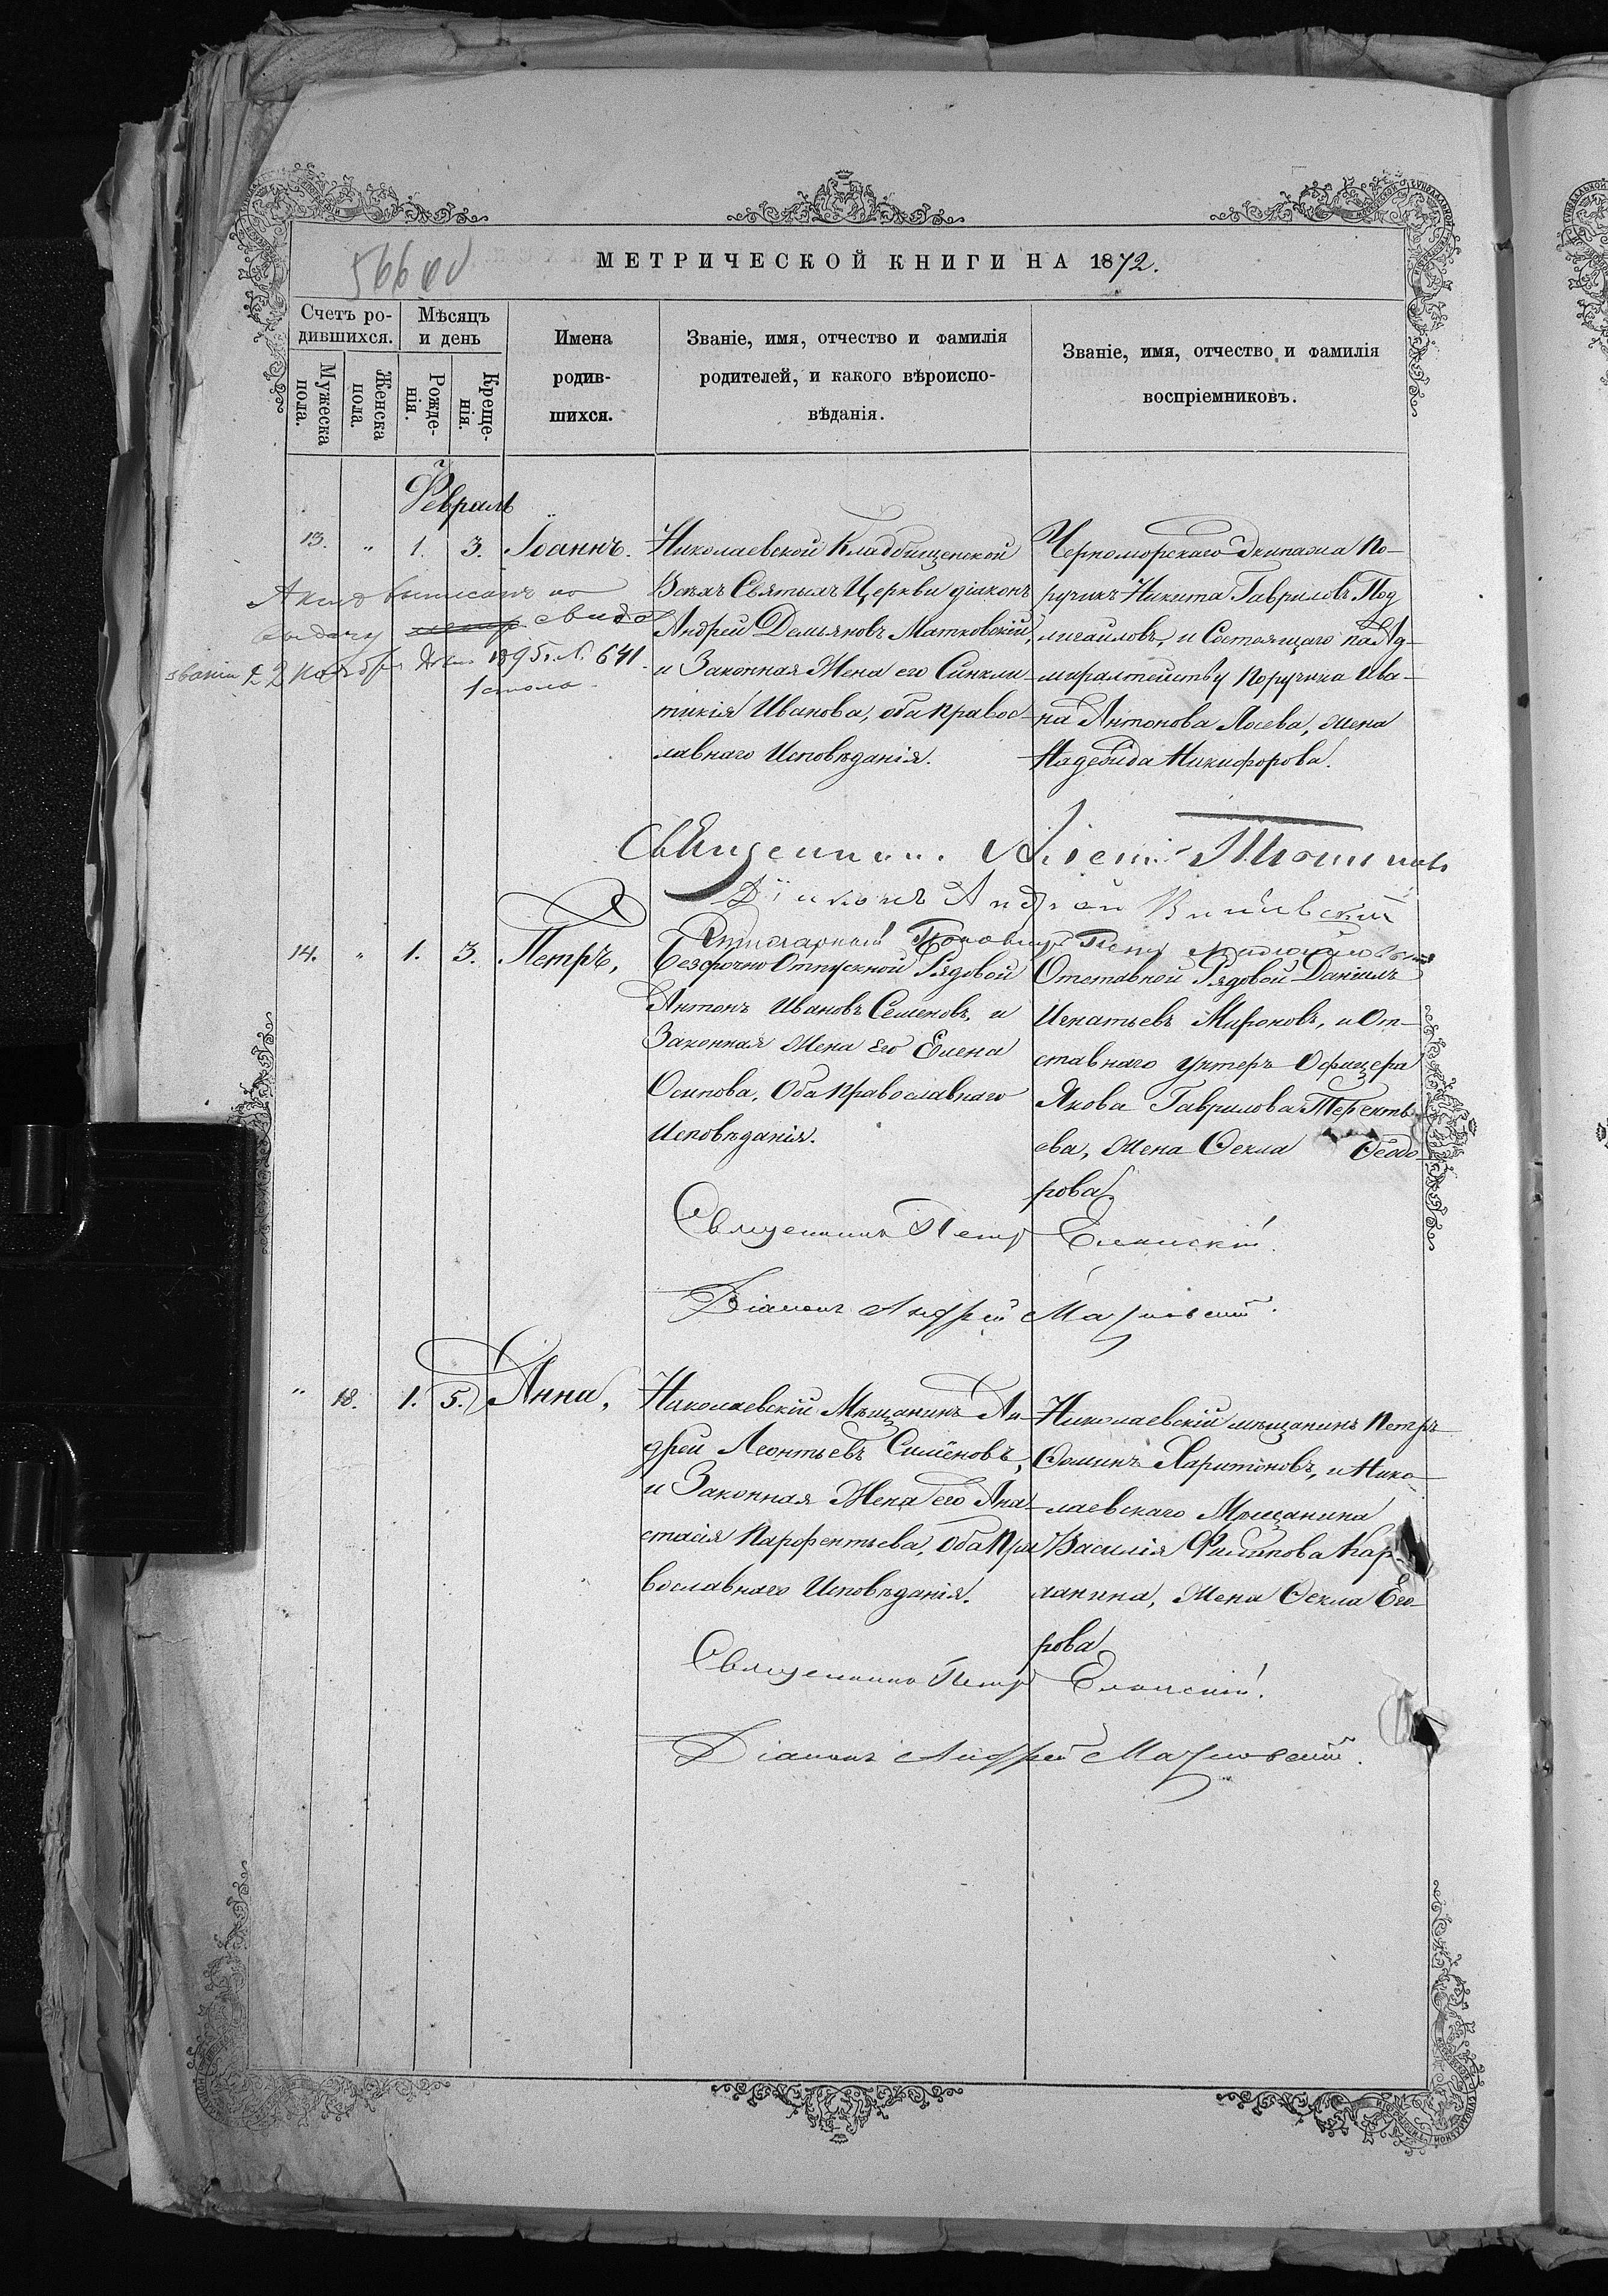 МЕТРИЧЕСКОЙ КНИГИ НА 1872.
Счетъ ро-
дившихся.
Мѣсяцъ
и день
Мужеска
пола.
Женска
пола.
Рожде-
нія.
Креще-
нія.
Имена
родив-
шихся.
Званіе, имя, отчество и фамилія
родителей, и какого вѣроиспо-
вѣданія.
Званіе, имя, отчество и фамилія
воспріемниковъ.
Февраль
13. " 1. 3. Іоаннъ.
Николаевской Кладбищенской
Всѣхъ Святыхъ Церкви діаконъ
Андрей Демьяновъ Матковскій,
и Законная Жена его Синкли-
тикія Иванова, оба правос-
лавнаго Исповѣданія.
Черноморскаго Экипажа По-
ручикъ Никита Гавриловъ Под
мигайловъ, и Состоящаго по Ад-
миралтейству Поручика Ива-
на Антонова Лосева, жена
Надежда Никифорова.
Актъ выписанъ по
выдачу свидѣ
1895. N. 641.
1 стола
Діаконъ Андрей
14. " 1. 3. Петръ,
Безсрочно Отпускной Рядовой
Антонъ Ивановъ Семеновъ, и
Законная жена его Елена
Осипова, Оба Православнаго
Исповѣданія.
Отставной Рядовой Даніилъ
Игнатьевъ Мироновъ, и От-
ставнаго унтеръ Офицера
Якова Гаврилова Теренть-
ева, жена Ѳекла Ѳеодо-
рова
Священникъ Петръ Еланскій.
Діаконъ Андрей Матковскій.
" 18. 1. 5. Анна,
Николаевскій Мѣщанинъ Ан-
дрей Леонтьевъ Симёновъ,
и Законная Жена его Ана-
стасія Парфентьева, Оба Пра
вославнаго Исповѣданія.
Николаевскій мѣщанинъ Петръ
Ѳоминъ Харитоновъ, и Нико-
лаевскаго Мѣщанина
Василія Филипова Кар-
лакина, жена Ѳекла Его-
рова
Священникъ Петръ Еланскій.
Діаконъ Андрей Матковскій.